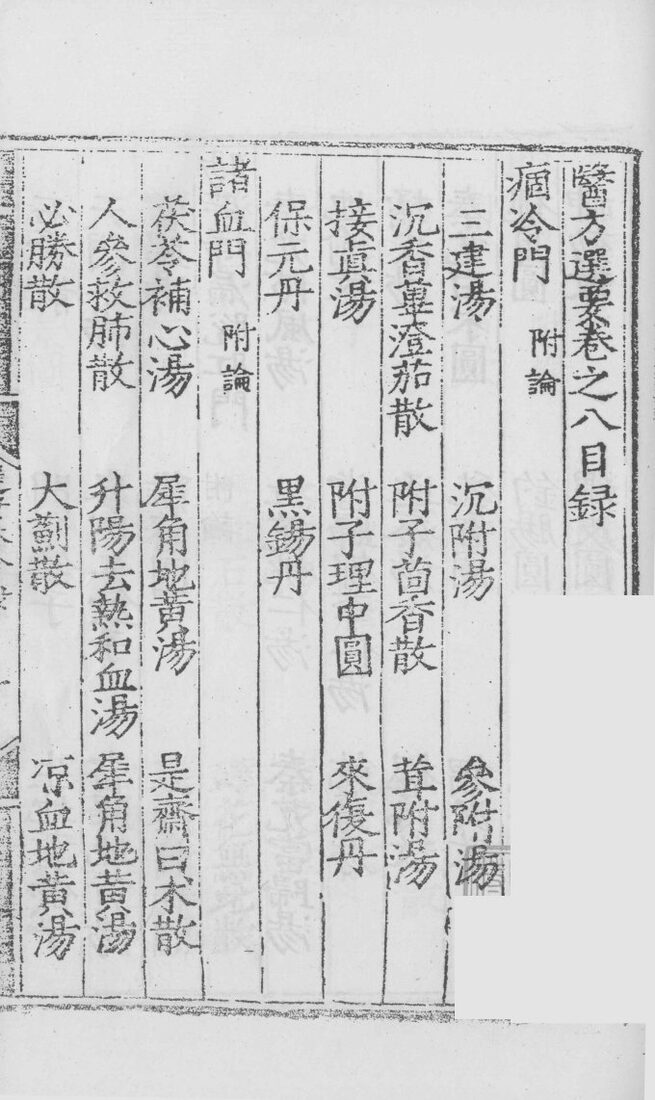 醫方選要卷之八目録
痼冷門 附論
三建湯 沉附湯 參附湯
沉香蓽澄茄散 附子茴香散 茸附湯
接眞湯 附子理中圓 來復丹
保元丹 黑錫丹
諸血門 附論
茯苓補心湯 犀角地黃湯 是齋曰术散
人參救肺散 升陽去熱和血湯 犀角地黃湯
必勝散 大薊散 凉血地黃湯